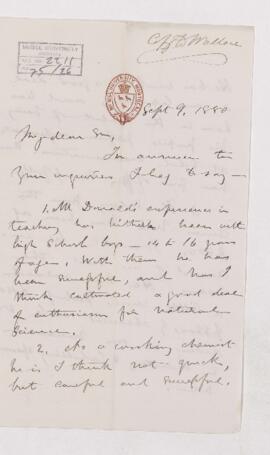 McGILL UNIVERSITY
ACC. NO. 2211
REF. 25/26
McGILL UNIVERSITY ARCHIVES
Sept 9, 1880
My dear Sir,
In answer to
your inquiries I beg to say —
1. McDonald's experience in
teaching has hitherto been with
high School boys — 14 to 16 years
of age. With them he has
been successful, and has I
think cultivated a good deal
of enthusiasm for Natural
Science.
2. As a working chemist
he is I think not quick,
but careful and successful.